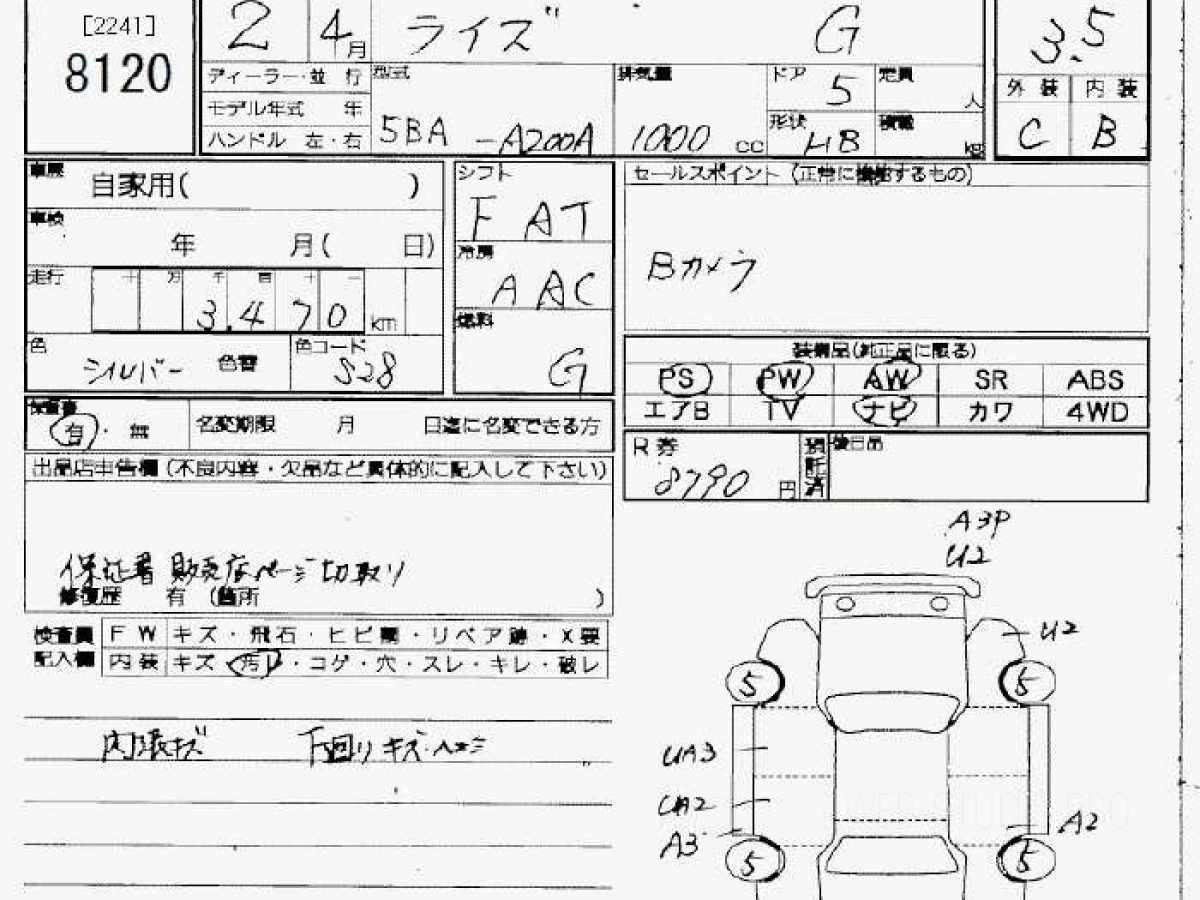 [2241]
8120
2 4月 ライズ G 3.5
ディーラー・並 行 型式 排気量 ドア 5 定員 人 外 装 内 装
モデル年式 年
ハンドル 左・右 5BA -A200A 1000 cc 形状 HB 積載 kg C B
車歴 自家用( )
車検 年 月( 日)
走行 十 万 千 百 十 一
3.470 km
色 シルバー 色替 色コード S28
シフト
F AT
冷房
A AC
燃料
G
セールスポイント (正常に機能するもの)
Bカメラ
装備品(純正品に限る)
PS PW AW SR ABS
エアB TV ナビ カワ 4WD
保証書
有・無 名変期限 月 日迄に名変できる方
R券 8790円 預託済 後日品
出品店申告欄(不良内容・欠品など具体的に記入して下さい)
保証書 販売店ページ切取り
修復歴 有 (箇所 )
検査員 F W キズ・飛石・ヒビ割・リペア跡・X要
記入欄 内 装 キズ・汚レ・コゲ・穴・スレ・キレ・破レ
内張キズ 下回りキズ・ヘコミ
A3P
U2
U2
5 5
UA3
UA2
A3 A2
5 5
WEB STUDIO PRO